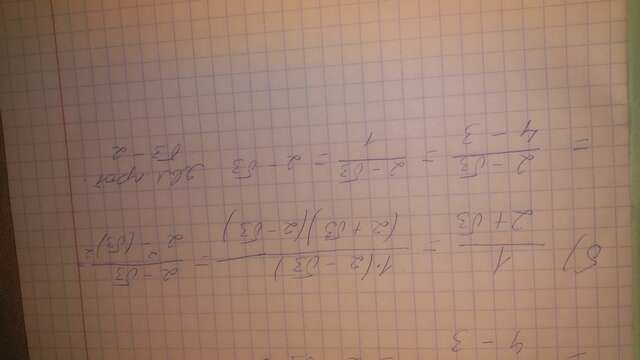 4 - 3
б) 1/(2 + √3) = 1·(2 - √3)/((2 + √3)(2 - √3)) = (2 - √3)/(2² - (√3)²)
= (2 - √3)/(4 - 3) = (2 - √3)/1 = 2 - √3
√3 - 2